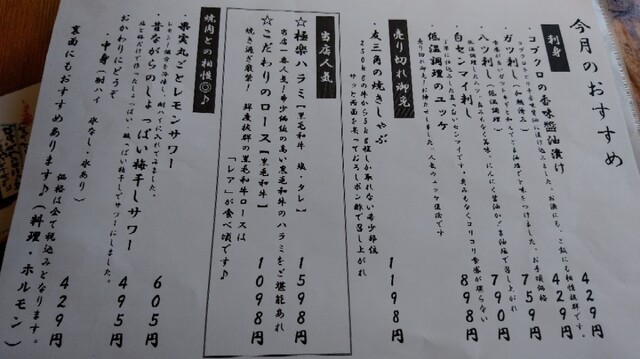 今月のおすすめ
刺身
・コブクロの香味醤油漬け 429円
・ガツ刺し 429円
・ハツ刺し(低温調理) 759円
・白センマイ刺し 790円
・低温調理のユッケ 898円
売り切れ御免
・友三角の焼きしゃぶ 1198円
サッと両面を炙っておろしポン酢で召し上がれ
当店人気
☆極楽ハラミ【黒毛和牛 塩・タレ】 1598円
当店一番人気!希少価値の高い黒毛和牛のハラミをご堪能あれ
☆こだわりのロース【黒毛和牛】 1098円
焼き過ぎ厳禁! 鮮度抜群の黒毛和牛ロースは
「レア」が食べ頃です♪
焼肉との相性◎♪
・果実丸ごとレモンサワー 605円
・昔ながらのしょっぱい梅干しサワー 495円
おかわりにどうぞ
・中身(酎ハイ 氷なし、氷あり) 429円
価格は全て税込みとなります。
裏面にもおすすめあります♪(料理・ホルモン)